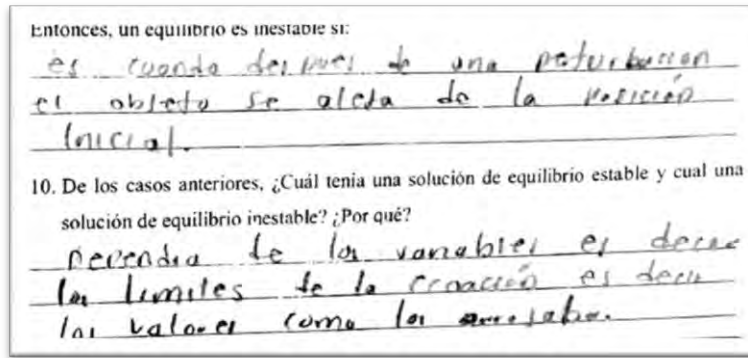 Entonces, un equilibrio es inestable si:
es cuando despues de una perturbacion
el objeto se aleja de la posición
inicial.
10. De los casos anteriores, ¿Cuál tenía una solución de equilibrio estable y cual una
solución de equilibrio inestable? ¿Por qué?
de las variables es
los limites de la es decir
los valores como los